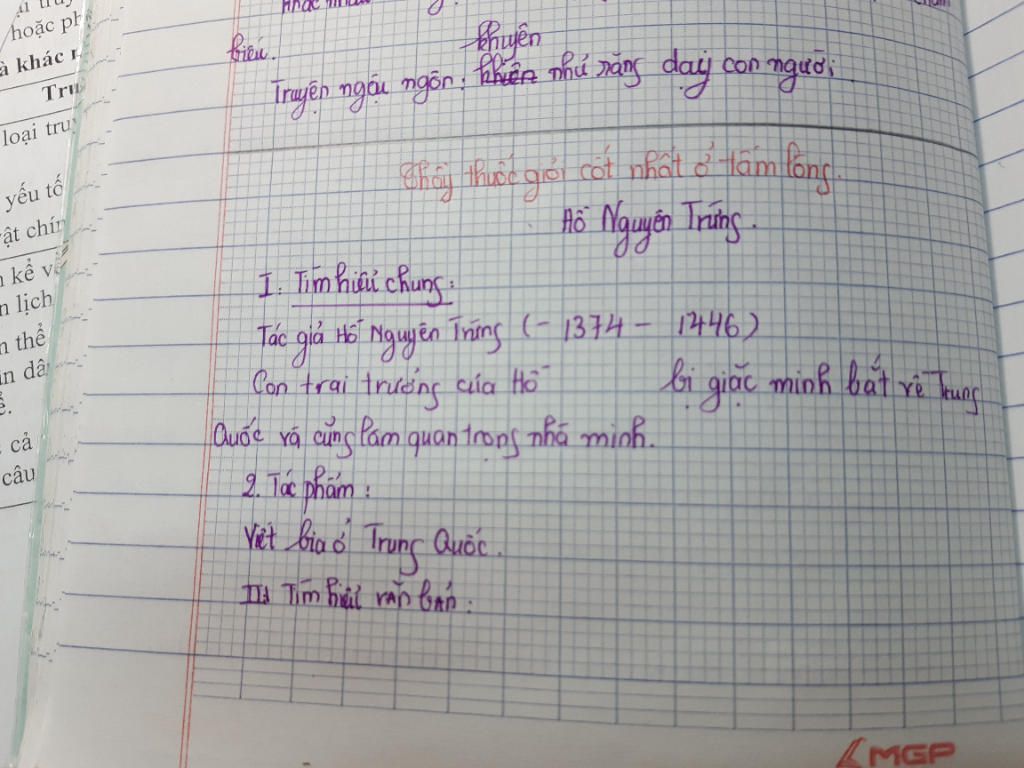 hoặc ph
à khác n
Tru
loại tru
yếu tố
vật chín
n kể về
n lịch
n thể
in dâ
cả
câu
biếu.
khuyên
Truyện ngậu ngôn: khiên như răng dạy con người.
Thầy thuốc giỏi cốt nhất ở tấm lòng.
Hồ Nguyên Trừng.
I. Tìm hiểu chung:
Tác giả Hồ Nguyên Trừng (- 1374 - 1446)
Con trai trưởng của Hồ bị giặc minh bắt về Trung
Quốc và cũng làm quan trọng nhà minh.
2. Tác phẩm:
Viết bia ở Trung Quốc.
II. Tìm hiểu văn bản:
MGP